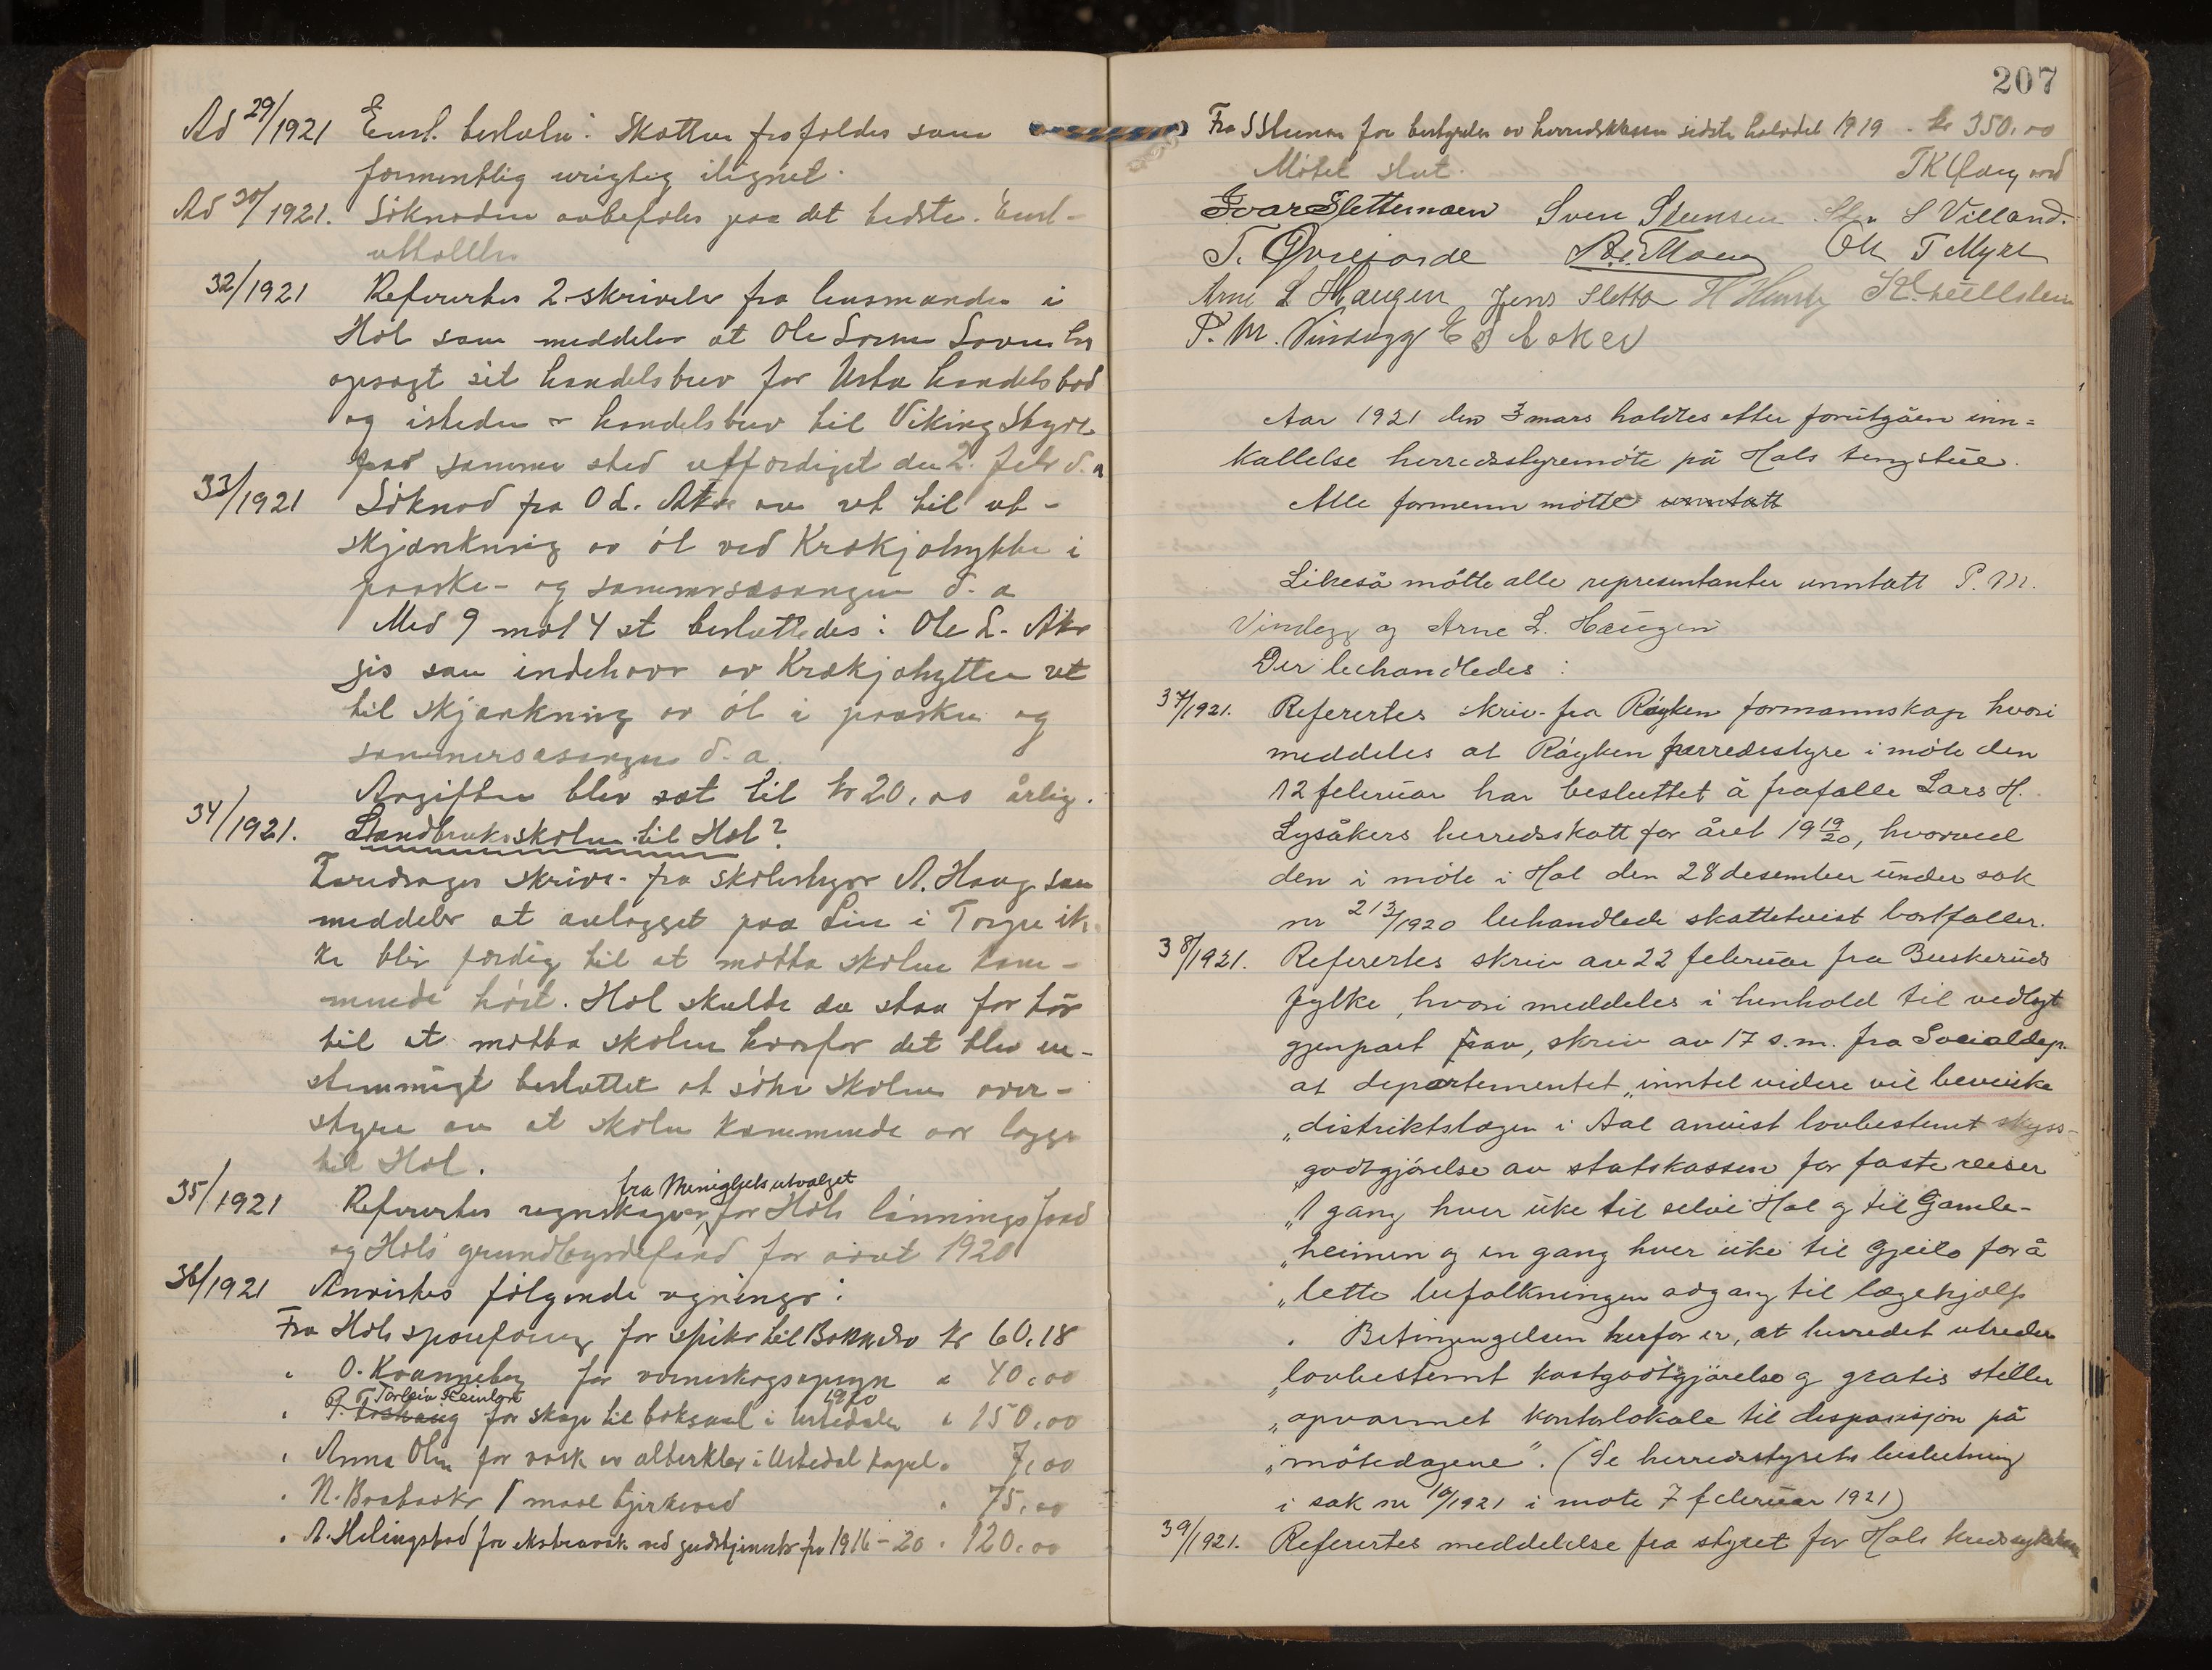 Ad 29/1921 Enst. besluttn: Skatten frafaldes som
formentlig urigtig ilignet.
Ad 30/1921. Söknaden anbefales paa det bedste. Enst-
32/1921 Refereres 2 skrivelser fra lensmanden i
Hol som meddeler at Ole Larsen har
opsagt sit handelsbrev for Usta handelsbod
og isteden handelsbrev til Viking
paa samme sted utfærdiget den 2. febr d. a
33/1921 Söknad fra O L. Aker om ret til ut-
skjænkning av öl ved Krækjahytten i
paaske- og sommersæsongen d. a
Med 9 mot 4 st besluttedes: Ole L. Aker
gis som indehaver av Krækjahytten ret
til skjænkning av öl i paasken og
sommersæsongen d. a.
Avgiften blev sat til kr 20,00 årlig.
34/1921. Landbruksskolen til Hol?
Foredrages skriv. fra skolestyrer A. Haug som
meddeler at anlægget paa Lie i Torpe ik-
ke blir færdig til at motta skolen kom-
mende höst. Hol skulde da staa for tör
til at motta skolen hvorfor det blev en-
stemmigt besluttet at söke skolens over-
styre om at skolen kommende aar lægges
til Hol.
35/1921 Referertes regnskaper fra Menighetsutvalget for Hols lönningsfond
og Hols grundbyrdefond for aaret 1920
36/1921 Anvistes fölgende regninger:
Fra Hols sparefoening for spiker til kr 60,18
" O. Kvanneberg for " 40,00
" Torleiv for skap til boksaml i Ustedalen 1920 " 150,00
" Anna Olsen for vask av alterklær i Ustedal kapel " 7,00
" N. Braabaake 1 maal bjerkeved " 75,00
" A. Helingstad for ekstravask ved gudstjenester fra 1916-20 " 120,00
207
Fra S Stensen for bestyrelse av herredskassen sidste halvdel 1919 . kr 350,00
Mötet slut.
Ivar Slettemoen Sven Stensen Sten S Villand.
T. Øvrejorde Ole T Myre
Arne L Haugen Jens Sletto
P. M. Vindegg E S Aaker
Aar 1921 den 3 mars holdtes efter forutgåen inn=
kallelse herredsstyremöte på Hols tingstue.
Alle formenn mötte unntatt
Likeså mötte alle representanter unntatt P. M.
Vindegg og Arne L. Haugen
Der behandledes:
37/1921. Referertes skriv fra Röyken formannskap hvori
meddeles at Röyken herredsstyre i möte den
12 februar har besluttet å frafalle Lars H.
Lysåkers herredsskatt for året 1919/20, hvorved
den i möte i Hol den 28 desember under sak
nr 213/1920 behandlede skattetvist bortfaller.
38/1921. Referertes skriv av 22 februar fra Buskeruds
fylke, hvori meddeles i henhold til vedlagt
gjenpart av, skriv av 17 s.m. fra Socialdep.
at departementet „inntil videre vil bevirke
„distriktslægen i Aal anvist lovbestemt skyss-
„godtgjörelse av statskassen for faste reiser
„1 gang hver uke til selve Hol og til Gamle-
„heimen og en gang hver uke til Gjeilo for å
„lette befolkningen adgang til lægehjælp
. Betingengelsen herfor er, at herredet utreder
„lovbestemt kostgodtgjörelse og gratis stiller
„opvarmet kontorlokale til disposisjon på
„mötedagene". (Se herredsstyrets beslutning
i sak nr 10/1921 i möte 7 februar 1921)
39/1921. Referertes meddelelse fra styret for Hols kredssykekasse